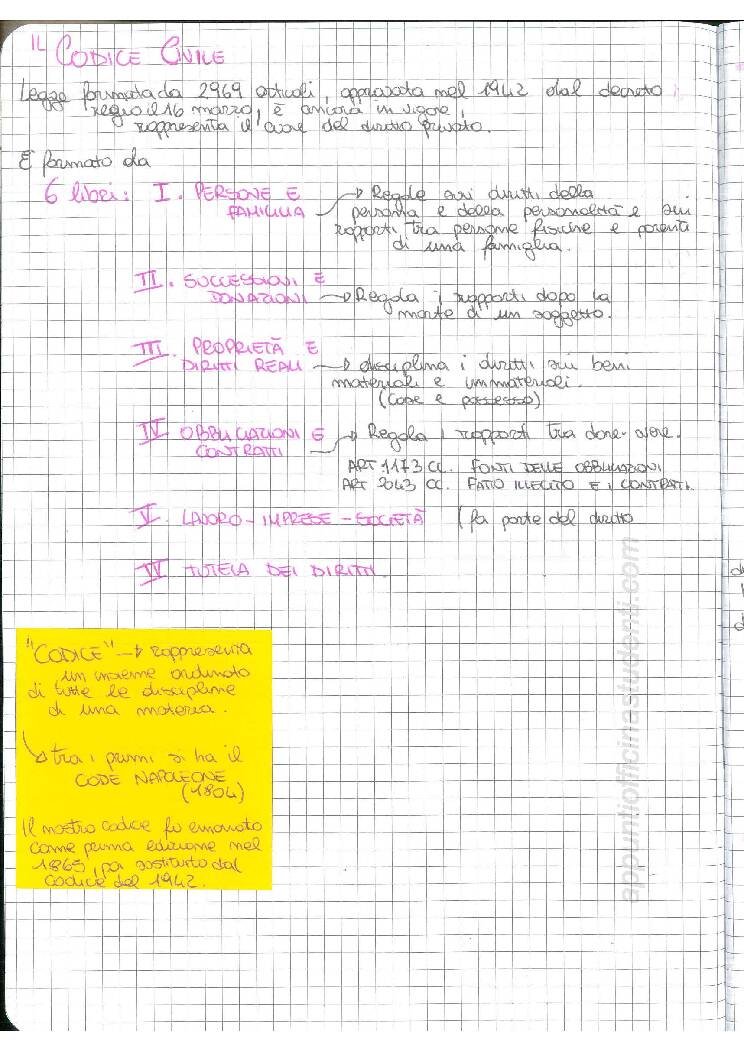 IL CODICE CIVILE
Legge formata da 2969 articoli, approvata nel 1942 dal decreto
regio il 16 marzo, è ancora in vigore,
rappresenta il cuore del diritto privato.
È formato da
6 libri: I. PERSONE E
FAMIGLIA → Regole sui diritti della
persona e della personalità e sui
rapporti tra persone fisiche e parenti
di una famiglia.
II. SUCCESSIONI E
DONAZIONI → Regola i rapporti dopo la
morte di un soggetto.
III. PROPRIETÀ E
DIRITTI REALI → disciplina i diritti sui beni
materiali e immateriali.
(Cose e possesso)
IV OBBLIGAZIONI E
CONTRATTI → Regola i rapporti tra dare-avere.
ART 1173 CC. FONTI DELLE OBBLIGAZIONI
ART 2043 CC. FATTO ILLECITO E I CONTRATTI.
V. LAVORO-IMPRESE-SOCIETÀ (fa parte del diritto
VI TUTELA DEI DIRITTI.
"CODICE" → rappresenta
un insieme ordinato
di tutte le discipline
di una materia.
→ tra i primi si ha il
CODE NAPOLEONE
(1804)
Il nostro codice fu emanato
come prima edizione nel
1865, poi sostituito dal
codice del 1942.
appuntiofficinastudenti.com